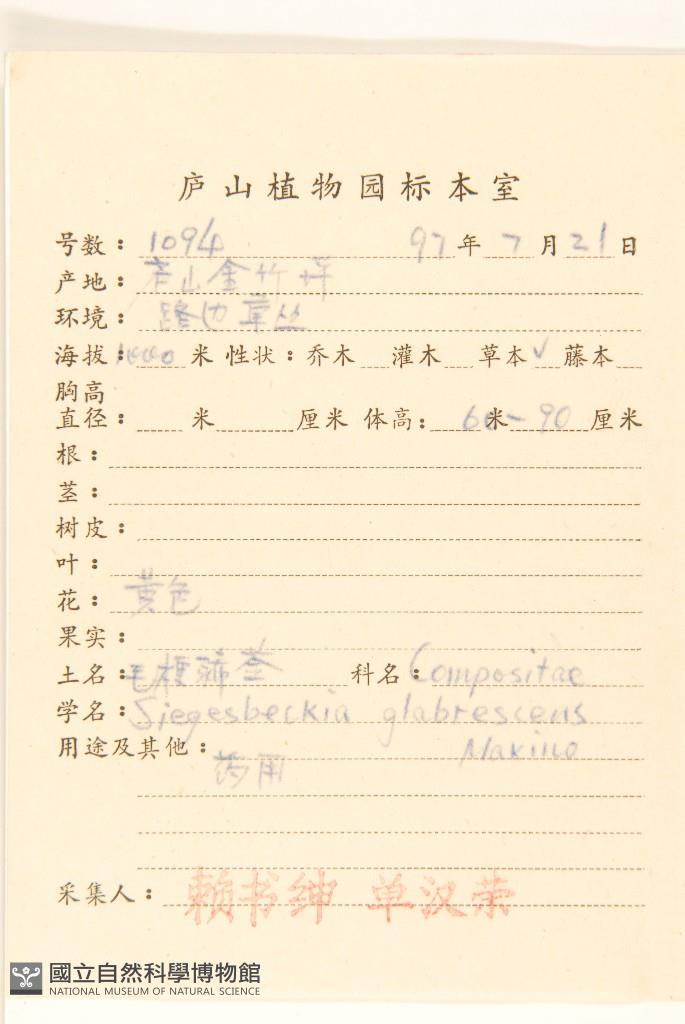 庐山植物园标本室
号数：1094 97年7月21日
产地：庐山金竹坪
环境：路边草丛
海拔：米 性状：乔木 灌木 草本✓ 藤本
胸高
直径： 米 厘米 体高： 60米-90厘米
根：
茎：
树皮：
叶：
花：黄色
果实：
土名：毛梗豨莶 科名：Compositae
学名：Siegesbeckia glabrescens
用途及其他： Makino
药用
采集人：赖书绅 单汉荣
國立自然科學博物館
NATIONAL MUSEUM OF NATURAL SCIENCE